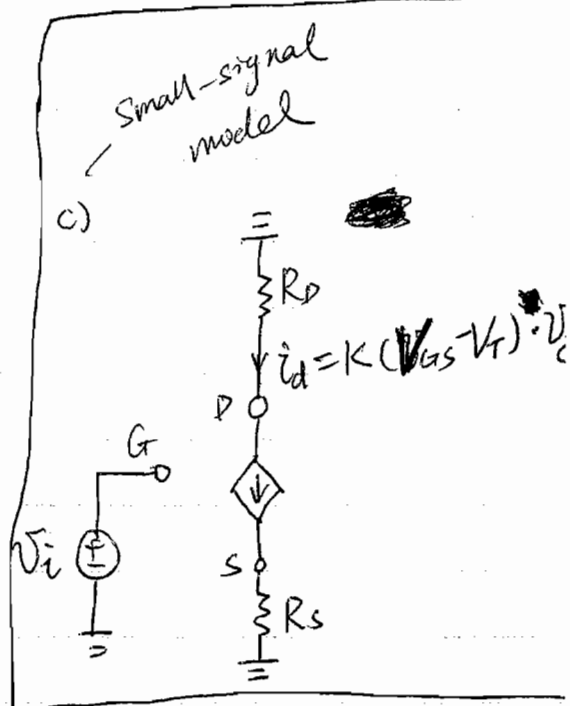 small-signal
model
c)
R_D
i_d = K(V_GS - V_T) · v
D
G
v_i
+
-
S
R_S